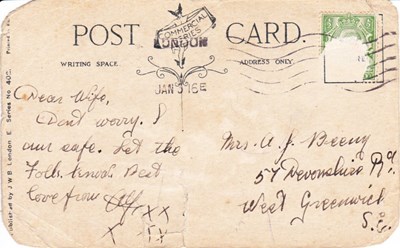 POST CARD
COMMERCIAL SERIES
LONDON
WRITING SPACE
ADDRESS ONLY
JAN 16 E
Dear Wife,
Dont worry. I
am safe. Let the
Folk know Best
love from Alf
X X
X X X
Mrs. A. J. Beeny
57 Devonshire Rd
West Greenwich
S.E.
Published by J W B London E Series No 40